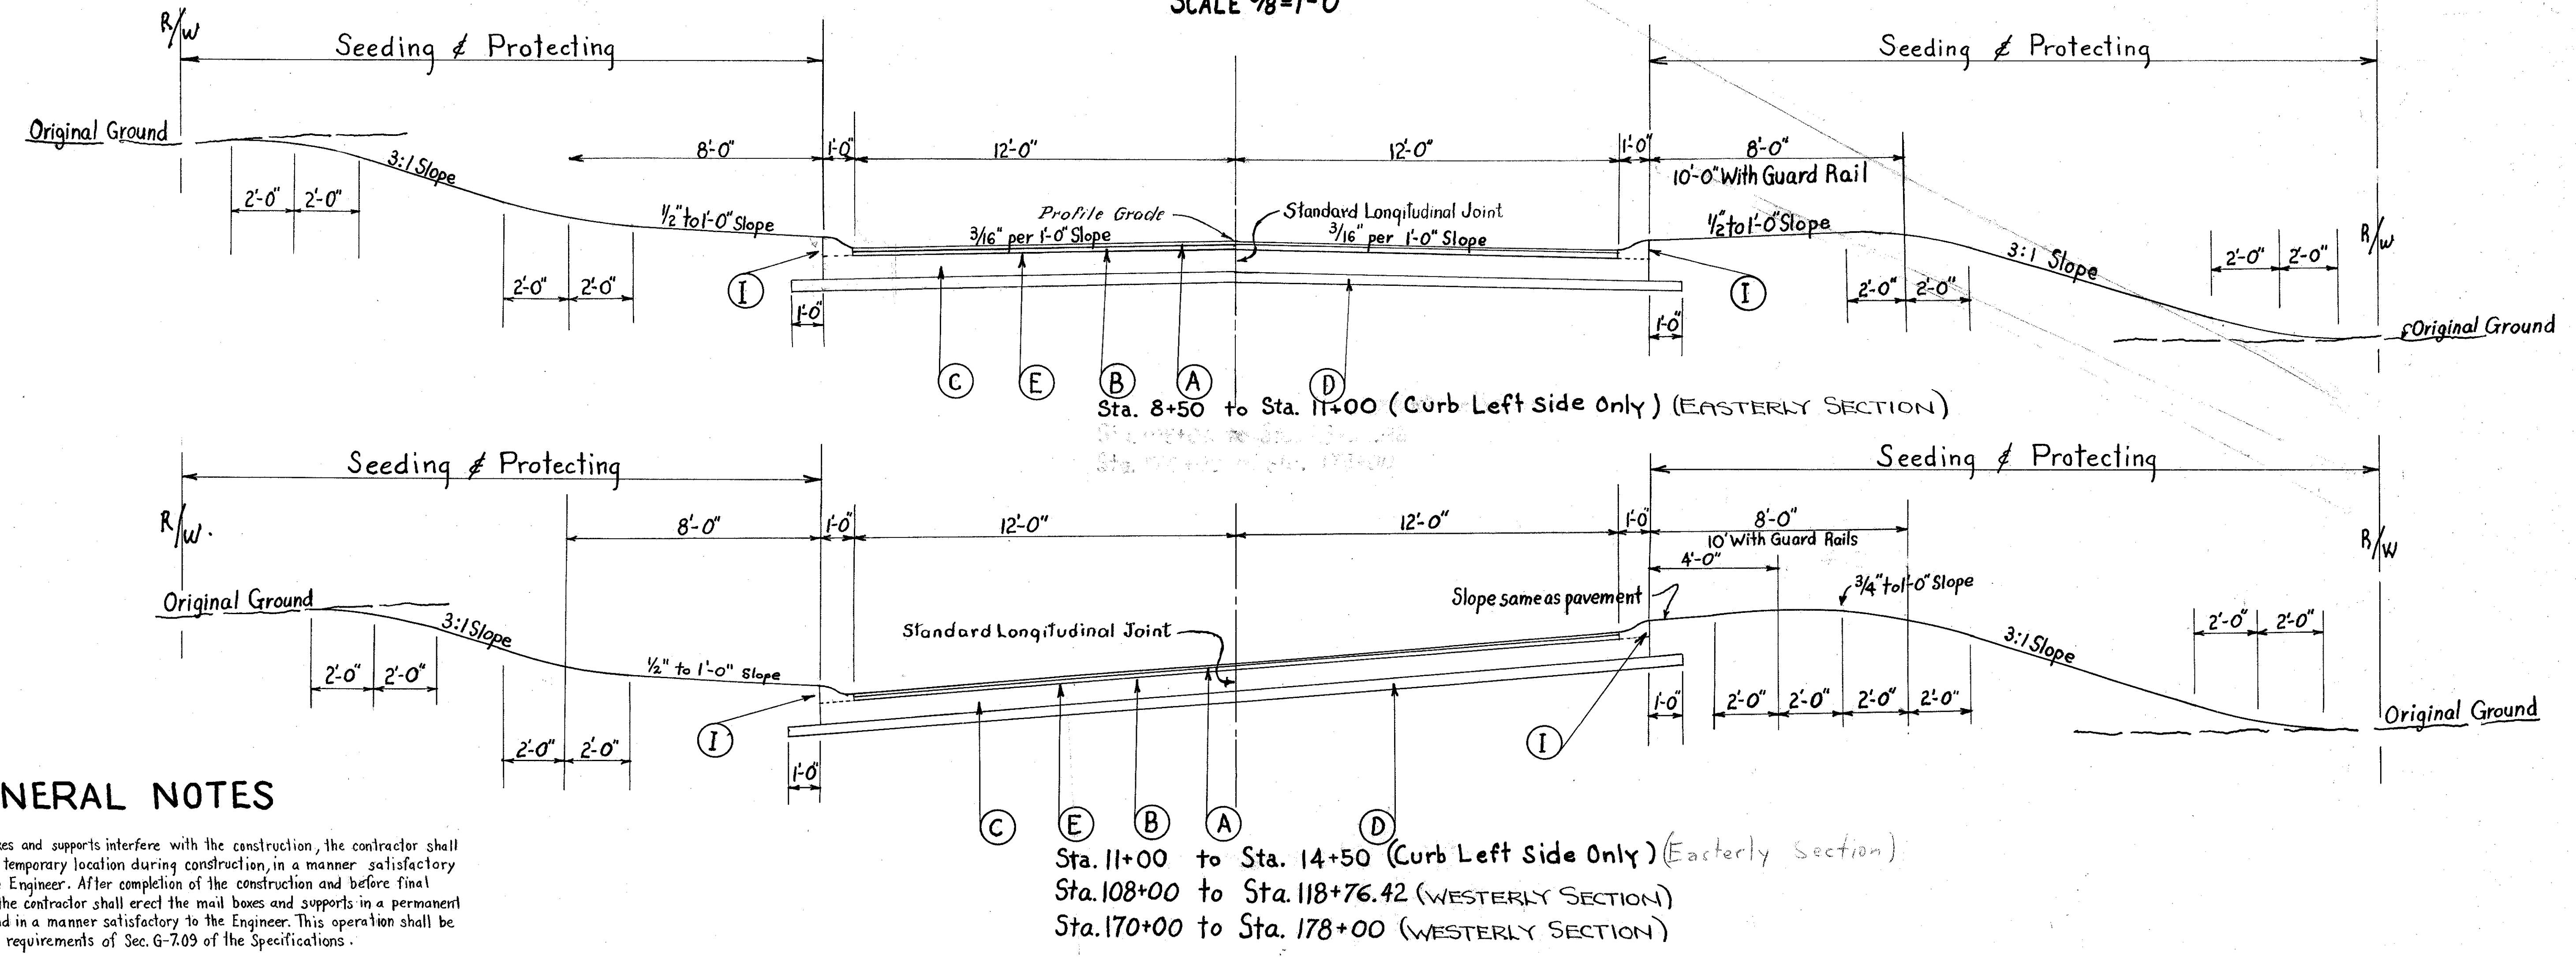 SCALE 3/8=1'-0"
R/W
Seeding & Protecting
Seeding & Protecting
Original Ground
8'-0"
1'-0"
12'-0"
12'-0"
1'-0"
8'-0"
10'-0" With Guard Rail
3:1 Slope
2'-0"
2'-0"
1/2" to 1'-0" Slope
Profile Grade
Standard Longitudinal Joint
3/16" per 1'-0" Slope
3/16" per 1'-0" Slope
1/2" to 1'-0" Slope
R/W
3:1 Slope
2'-0"
2'-0"
2'-0"
2'-0"
I
I
2'-0"
2'-0"
1'-0"
1'-0"
Original Ground
C
E
B
A
D
Sta. 8+50 to Sta. 11+00 (Curb Left Side Only) (EASTERLY SECTION)
Seeding & Protecting
Seeding & Protecting
R/W.
8'-0"
1'-0"
12'-0"
12'-0"
1'-0"
8'-0"
10' With Guard Rails
R/W
4'-0"
Slope same as pavement
3/4" to 1'-0" Slope
Original Ground
3:1 Slope
Standard Longitudinal Joint
2'-0"
2'-0"
3:1 Slope
2'-0"
2'-0"
1/2" to 1'-0" Slope
1'-0"
2'-0"
2'-0"
2'-0"
2'-0"
Original Ground
I
I
2'-0"
2'-0"
1'-0"
C
E
B
A
D
Sta. 11+00 to Sta. 14+50 (Curb Left Side Only) (Easterly Section)
Sta. 108+00 to Sta. 118+76.42 (WESTERLY SECTION)
Sta. 170+00 to Sta. 178+00 (WESTERLY SECTION)
NERAL NOTES
es and supports interfere with the construction, the contractor shall
temporary location during construction, in a manner satisfactory
Engineer. After completion of the construction and before final
the contractor shall erect the mail boxes and supports in a permanent
d in a manner satisfactory to the Engineer. This operation shall be
requirements of Sec. G-7.09 of the Specifications.